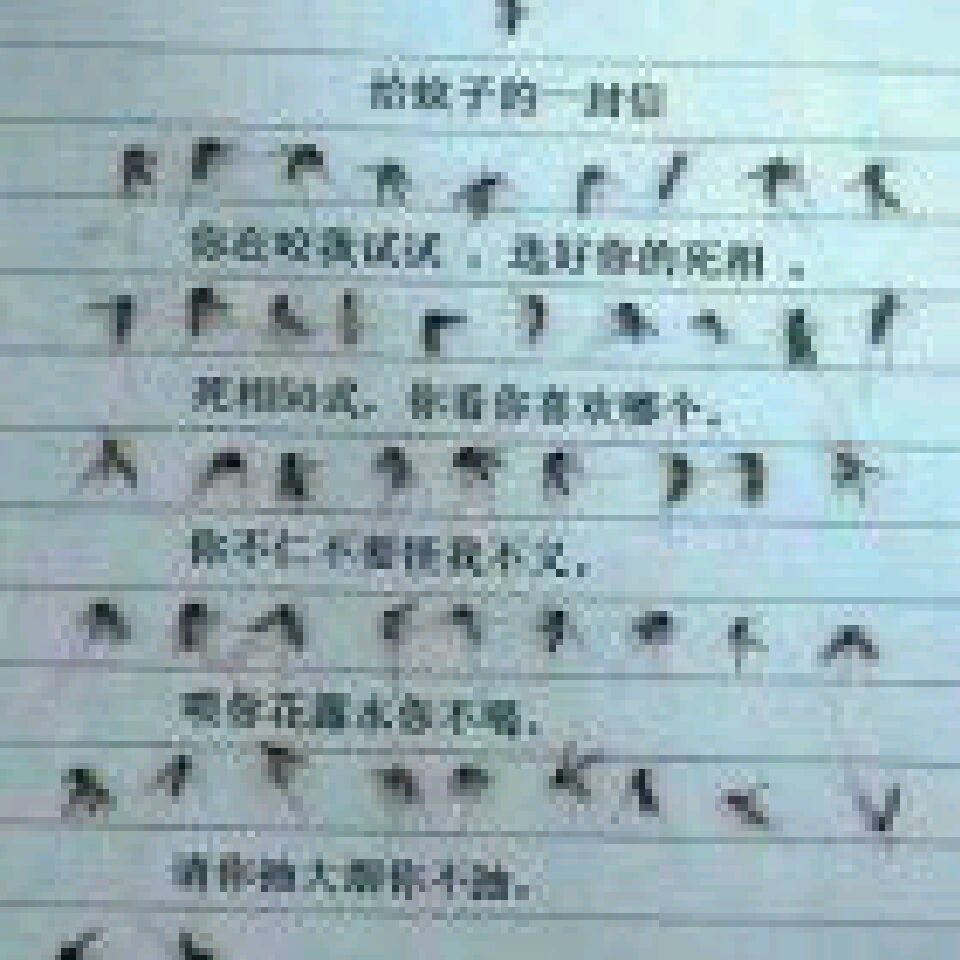 给蚊子的一封信
你在咬我试试，选好你的死相，
死相50式，你看你喜欢哪个，
你不仁不要怪我不义，
喷你花露水你不喝，
请你抽大烟你不抽，